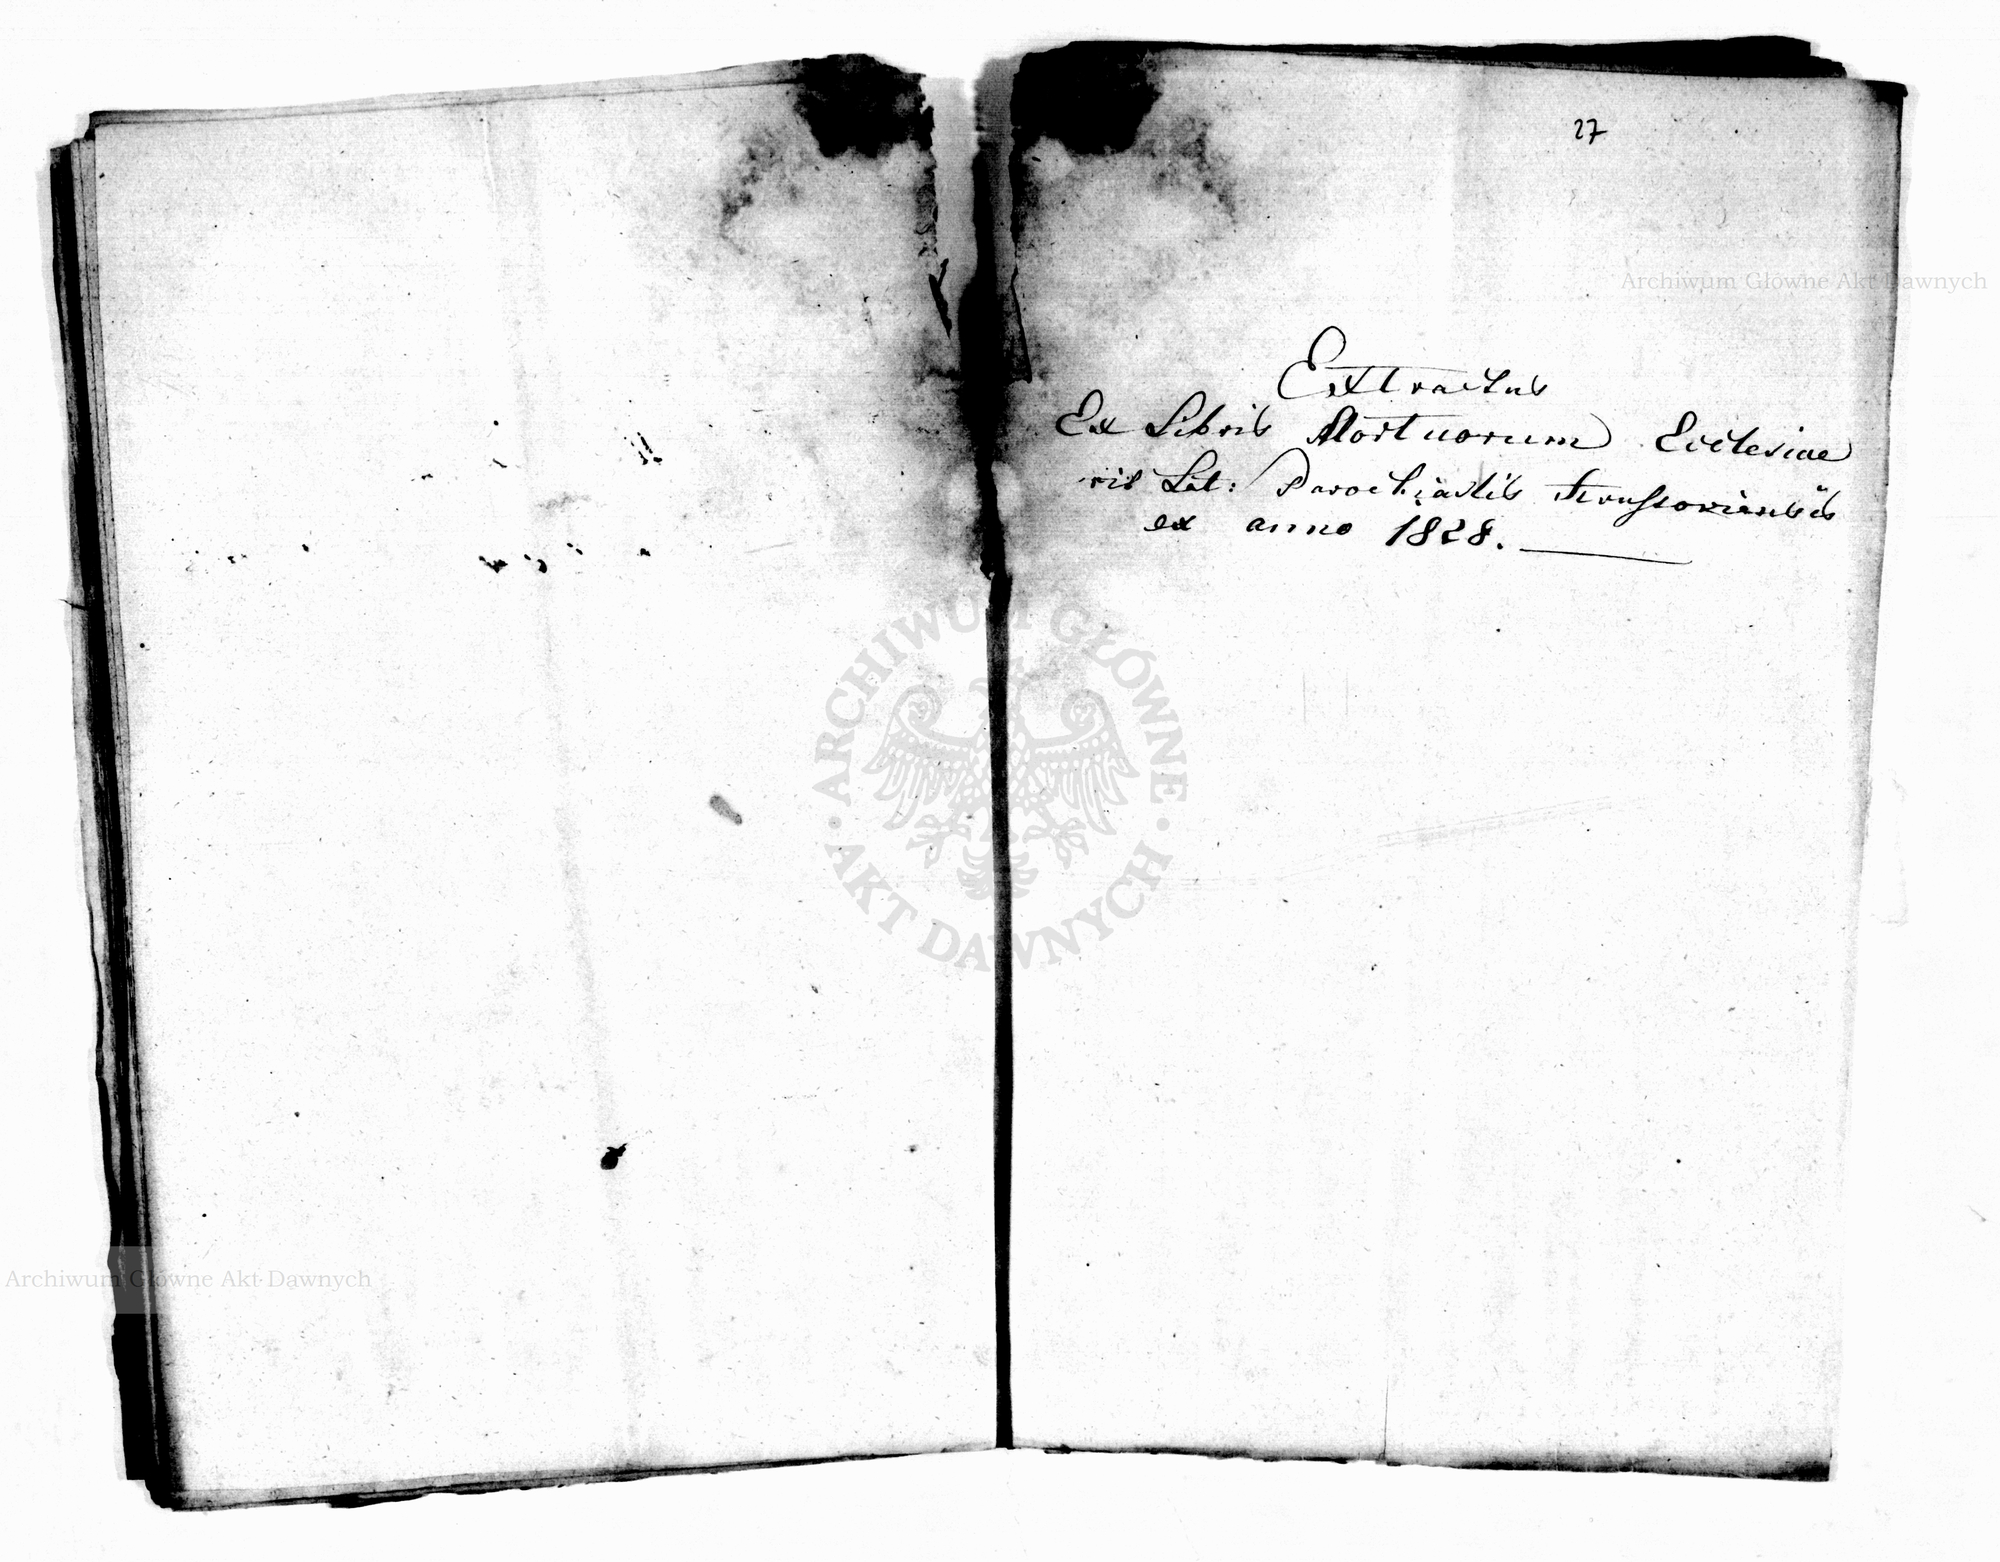 27
Archiwum Główne Akt Dawnych
Extractus
Ex Libris Mortuorum Ecclesiae
rit Lat: Parochialis
ex anno 1828.
ARCHIWUM GŁÓWNE AKT DAWNYCH
Archiwum Główne Akt Dawnych